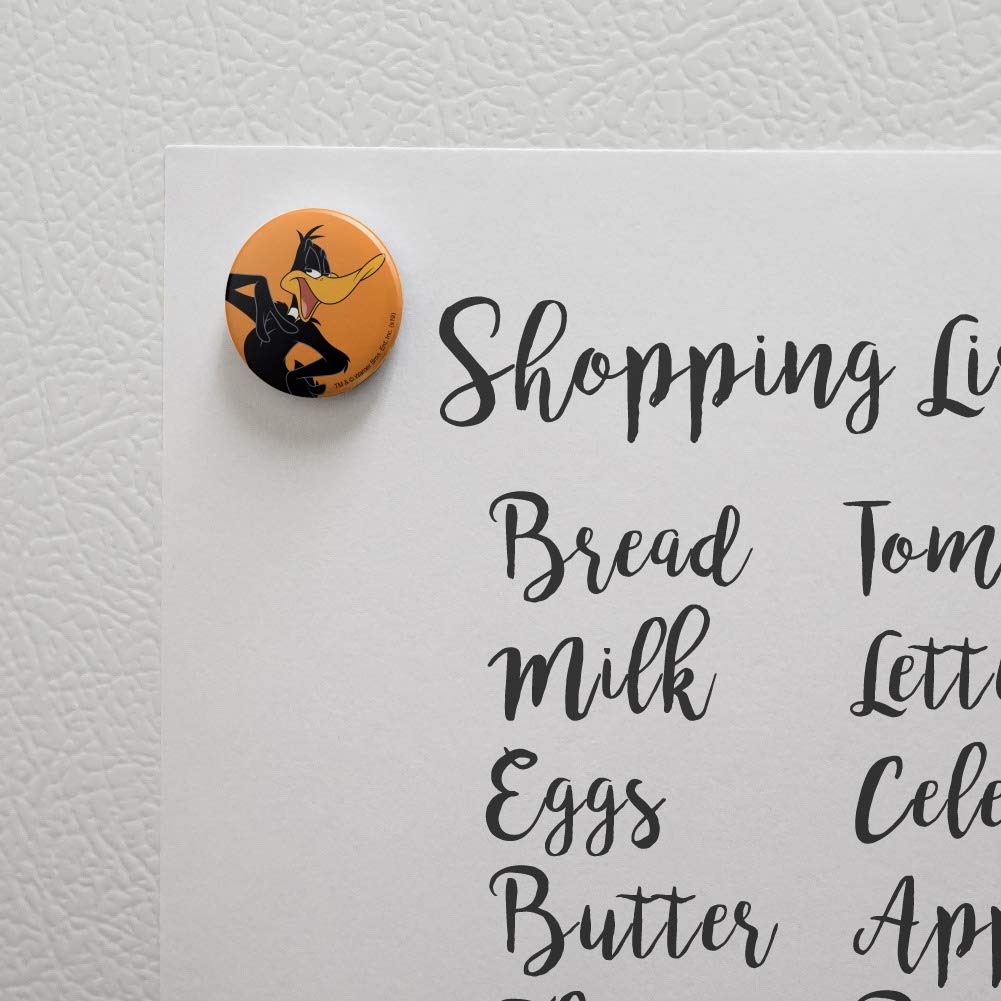 TM & © Warner Bros. Ent. Inc. (s19)
Shopping Li
Bread Tom
Milk Lett
Eggs Cele
Butter App